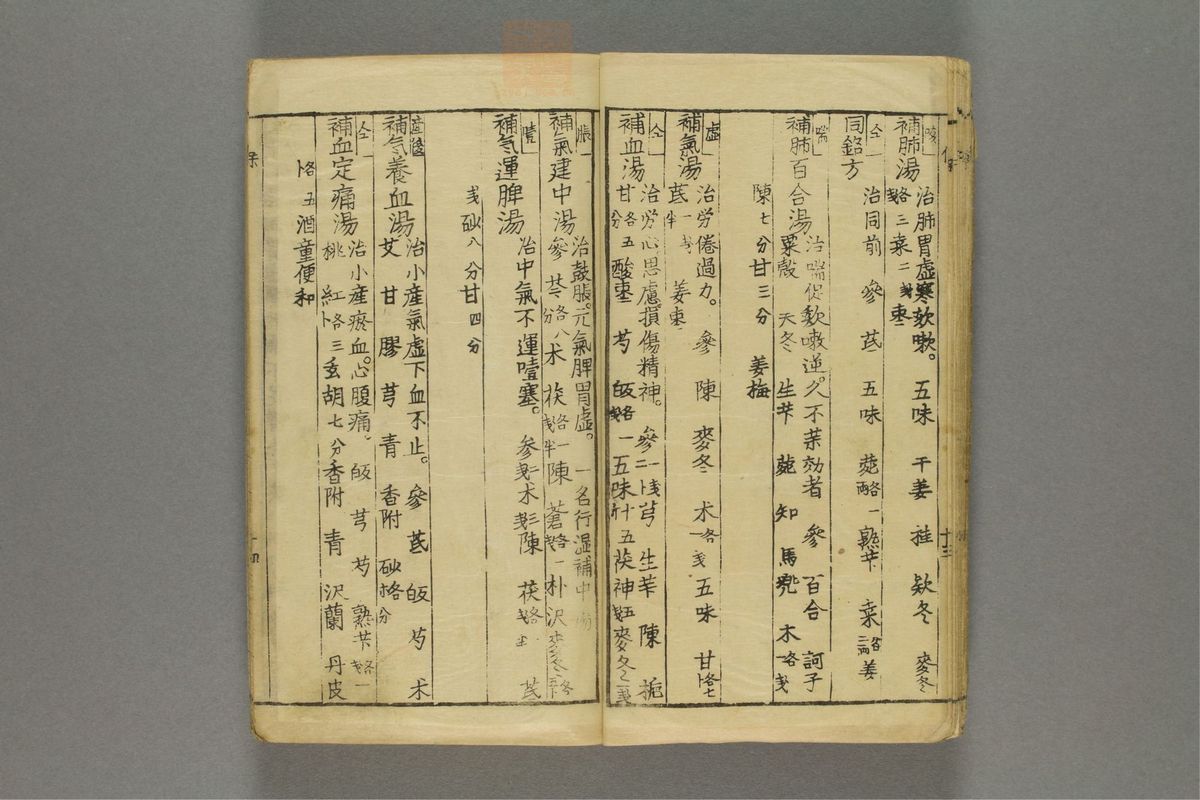 咳
補肺湯
治肺胃虚寒欬嗽。 五味 干姜 桂 欵冬 麥冬
各三 桒二戋 枣
仝
同銘方
治同前 參 芪 五味 菀各一 熟苄 桒 姜
喘
補肺百合湯
治喘促欬嗽逆。久不効者 參 百合 訶子
粟殻 天冬 生苄 菀 知 馬兜 木各一戋
陳七分 甘三分 姜梅
虚
補氣湯
治労倦過力。 參 陳 麥冬 术各一戋 五味 甘各七卜
芪一戋半 姜枣
仝
補血湯
治労心思慮。損傷精神。 參 芎 生苄 陳 栀
甘各五分 酸枣 芍 皈各一戋 五味十五 茯神 麥冬
脹
補氣建中湯
治鼓脹。元氣脾胃虚。 一名行湿補中湯
參 芩各八分 术 茯各一戋半 陳 蒼各一戋 朴 沢 麥冬
噎
補氣運脾湯
治中氣不運噎塞。 参二戋 术三戋 陳 茯各 芪
戋 砂八分 甘四分
産後
補氣養血湯
治小産氣虚下血不止。 參 芪 皈 芍 术
艾 甘 膠 芎 青 香附 砂各 分
仝
補血定痛湯
治小産瘀血。心腹痛。 皈 芎 芍 熟苄各一戋
桃 紅各三卜 玄胡七分 香附 青 沢蘭 丹皮
各五卜 酒童便和
十三